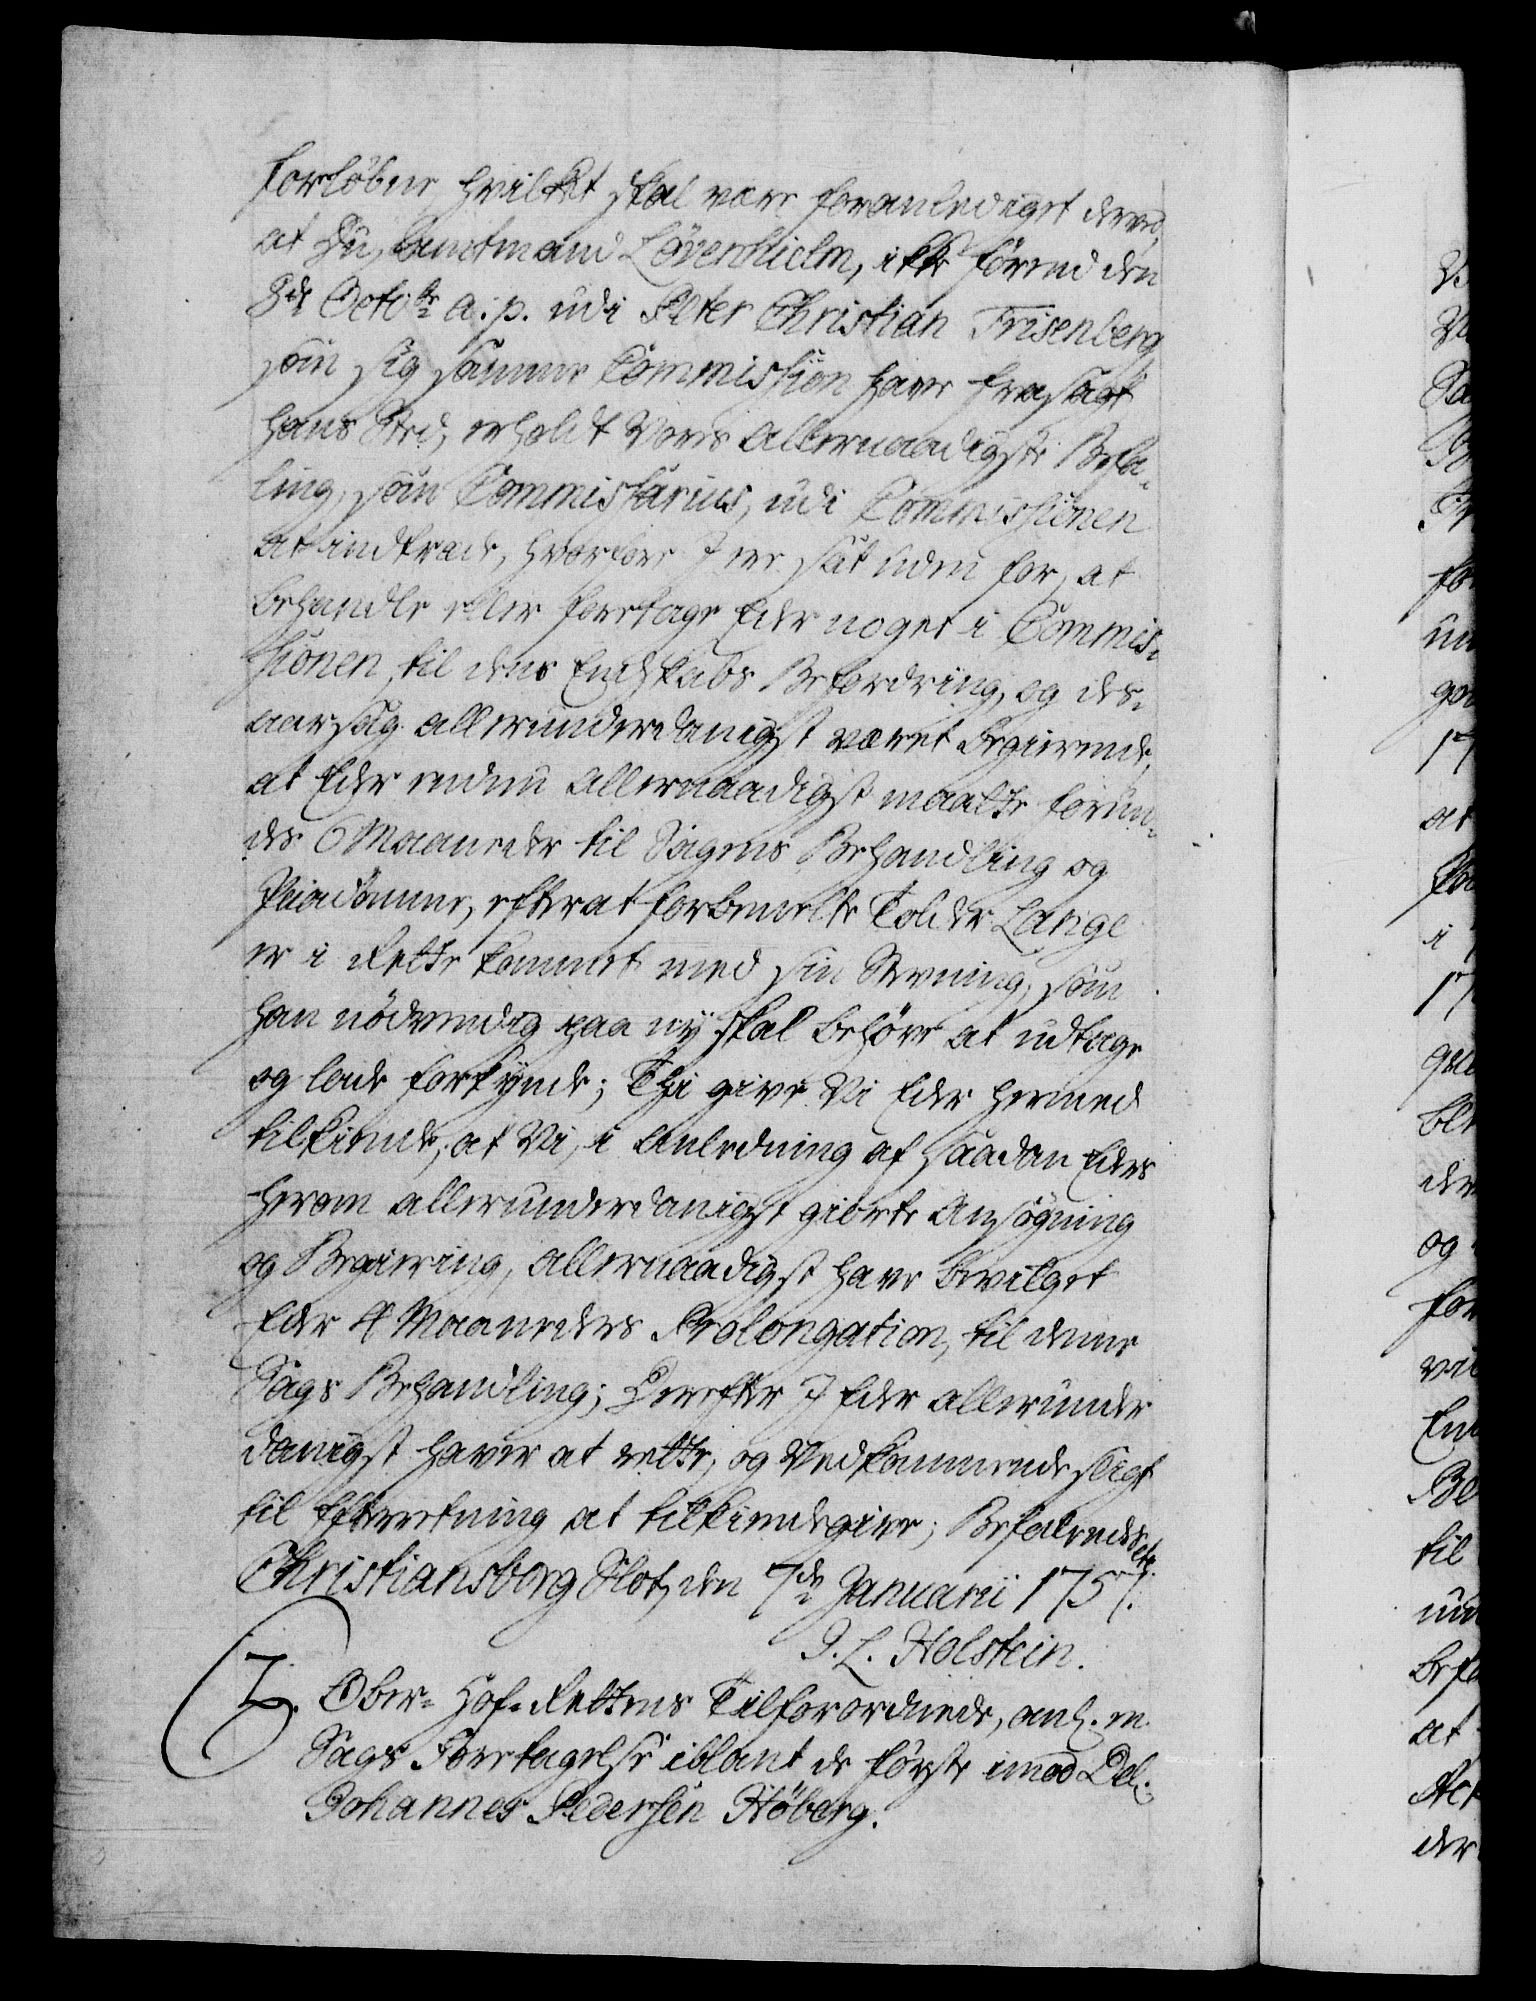 forløbne, hvilket skal være foranlediget derved,
at Du, Amtmand Lövenhielm, ikke førend den
8de Octobr a. p. udi Peter Christian Frisenberg,
som sig samme Commission haver frasagt
hans Sted, erholdt Vores allernaadigste Befa-
ling, som Commissarius, udi Commissionen
at indtræde, hvorfore I ere sat uden for, at
behandle eller foretage Eder noget i Commis-
sionen, til dens Endskabs Befordring, og des-
aarsag allerunderdanigst været begierende,
at Eder endnu allernaadigst maatte forun-
des 6 Maaneder til Sagens Behandling og
Paadømme, efterat forbemelte Tolder Lange
er i Rette kommet med sin Stevning, som
han nødvendig paa ny skal behøve at udtage
og lade forkynde; Thi give Vi Eder hermed
tilkiende, at Vi, i Anledning af saadan Eders
herom allerunderdanigst giorte Ansøgning
og Begiering, allernaadigst have bevilget
Eder 4 Maaneders Prolongation, til denne
Sags Behandling; Derefter I Eder allerunder
danigst haver at rette, og Vedkommende sligt
til Efterretning at tilkiendegive; Befalendes etc.
Christiansborg Slot, den 7de Januarii 1757.
J. L. Holstein.
7. Ober- Hof-Rettens Tilforordnede, anl. en
Sags Foretagelse iblant de første imod Del:
Johannes Pedersen Höberg.